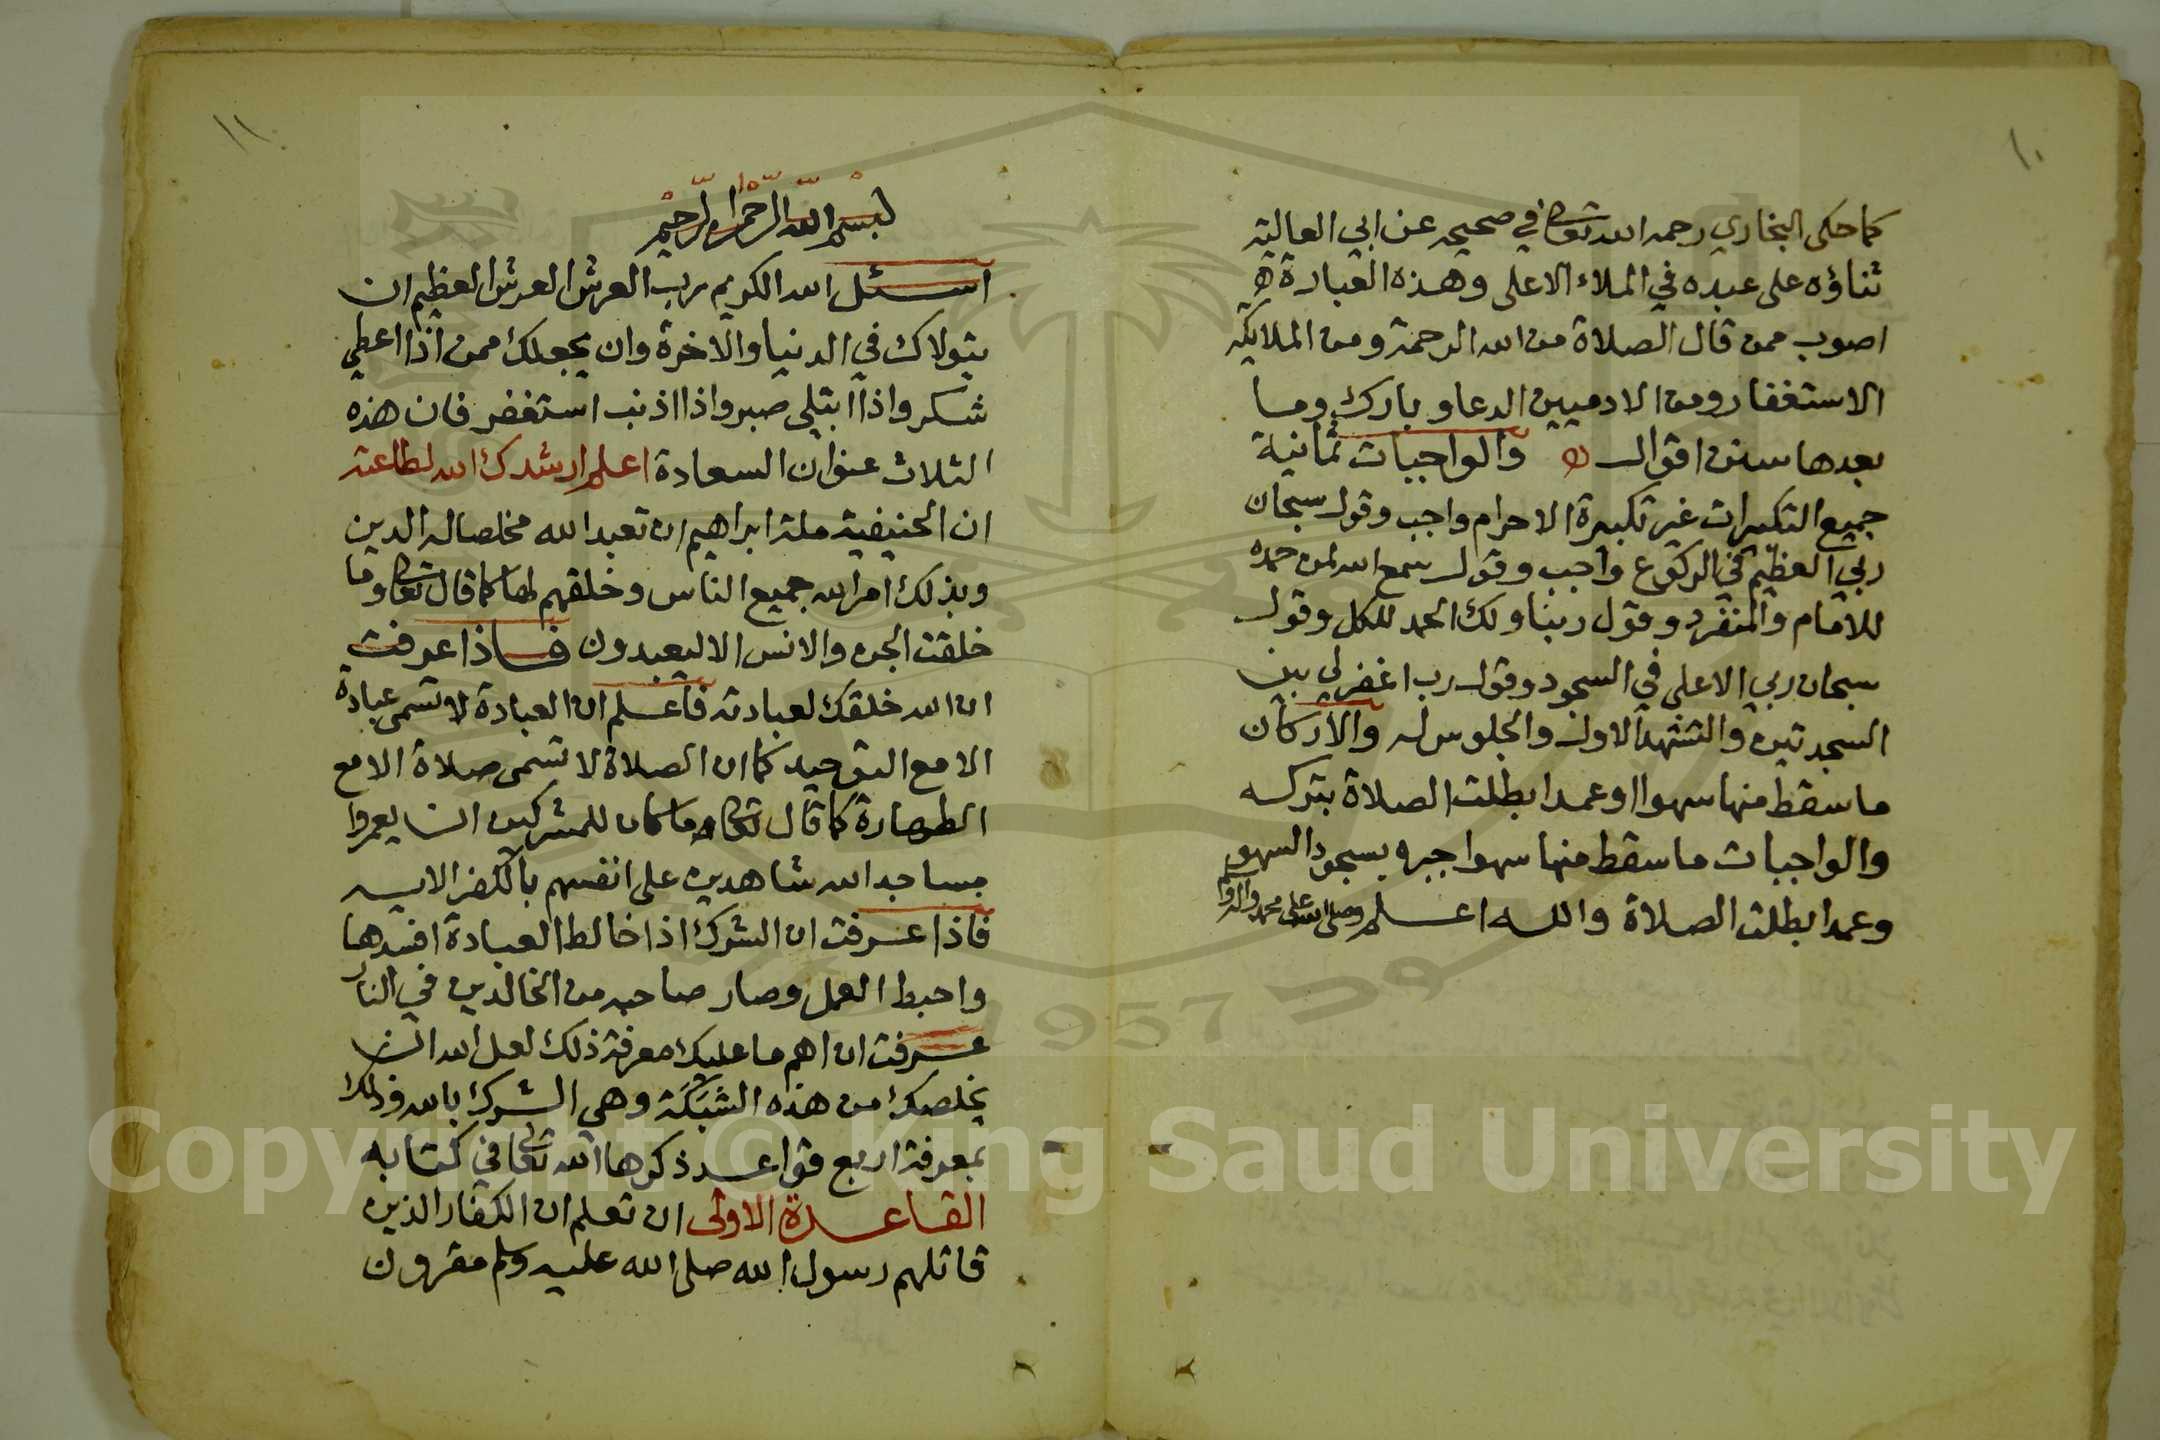 ١٠
كما حكى البخاري رحمه الله تعالى في صحيحه عن ابي العالية
ثناؤه على عبده في الملاء الاعلى وهذه العبارة
اصوب ممن قال الصلاة من الله الرحمة ومن الملايكة
الاستغفار ومن الادميين الدعا وبارك وما
بعدها سنن اقوال والواجبات ثمانية
جميع التكبيرات غير تكبيرة الاحرام واجب وقول سبحان
ربي العظيم في الركوع واجب وقول سمع الله لمن حمده
للامام والمنفرد وقول ربنا ولك الحمد للكل وقول
سبحان ربي الاعلى في السجود وقول رب اغفر لي بين
السجدتين والتشهد الاول والجلوس له والاركان
ما سقط منها سهوا او عمدا بطلت الصلاة بتركه
والواجبات ما سقط منها سهوا جبره بسجود السهو
وعمدا بطلت الصلاة والله اعلم وصلى الله على محمد واله وسلم
١١
بسم الله الرحمن الرحيم
اسئل الله الكريم رب العرش العرش العظيم ان
يتولاك في الدنيا والاخرة وان يجعلك ممن اذا اعطي
شكر واذا ابتلى صبر واذا اذنب استغفر فان هذه
الثلاث عنوان السعادة اعلم ارشدك الله لطاعته
ان الحنيفية ملة ابراهيم ان تعبد الله مخلصا له الدين
وبذلك امر الله جميع الناس وخلقهم لها كما قال تعالى وما
خلقت الجن والانس الا ليعبدون فاذا عرفت
ان الله خلقك لعبادته فاعلم ان العبادة لا تسمى عبادة
الا مع التوحيد كما ان الصلاة لا تسمى صلاة الا مع
الطهارة كما قال تعالى ما كان للمشركين ان يعمروا
مساجد الله شاهدين على انفسهم بالكفر الايه
فاذا عرفت ان الشرك اذا خالط العبادة افسدها
واحبط العمل وصار صاحبه من الخالدين في النار
عرفت ان اهم ما عليك معرفة ذلك لعل الله ان
يخلصك من هذه الشبكة وهي الشرك بالله وذلك
بمعرفة اربع قواعد ذكرها الله تعالى في كتابه
القاعدة الاولى ان تعلم ان الكفار الذين
قاتلهم رسول الله صلى الله عليه وسلم مقرون
1957
Copyright © King Saud University